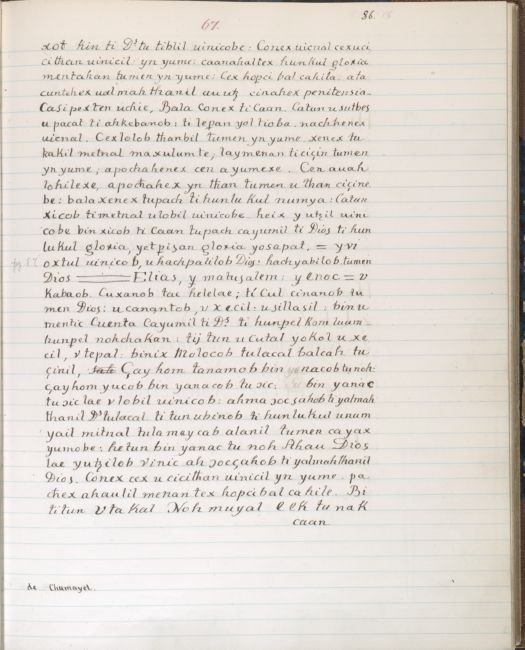 86.
67.
xot kin ti Ds tu tiblil uinicobe: Conex uicnal cexuci
cithan uinicil yn yume: caanahaltex hunkul gloria
mentahan tumen yn yume: Cex hopci bal cahile. ata
cuntehex ualmahthanil uutz cinahex penitensia.
Casipexten uchic, Bala Conex ti Caan. Catun u sutbes
u pacat ti ahkebanob: ti lepan yol tioba. nachhenex
uicnal. Cexlolob thanbil tumen yn yume xenex tu
kakil metnal maxulumte, laymenan ti cizin tumen
yn yume, apachahenex cen a yumexe. Cen auah
lohilexe, apochahex yn than tumen u than cizine
be: balaxenex tupach ti hunlu kul numya: Catun
xicob ti metnal ulobil uinicobe heix y utzil uini
cobe bin xicob ti Caan tupach cayumil ti Dios ti hun
lukul gloria, yetpisan gloria yosapat, = y vi
oxtul uinicob, u hachpatilob Dios: hachyabilob tumen
Dios Elias, y matusalem: y enoc = v
kabaob. Cuxanob tac helelae; ti Cul cinanob tu
men Dios: u canantob, v xecil: u sillasil: bin u
mentic Cuenta Cayumil ti Ds ti hunpel kom luum
hunpel nohchakan: tij tun u cutal yokol u xe
cil, v tepal: binix Molocob tulacal balcah tu
çinil, Çay hom tanamob bin yanacob tu noh:
çayhom yucob bin yanacob tu sic: bin yanac
tu sic lae v lobil uinicob: ahma ocsahob ti yalmah
thanil Ds tulacal ti tun ubinob ti hunlukul unum
yail mitnal tula mey cab alanil tumen ca yax
yumobe: hetun bin yanac tu noh Ahau Dios
lae yutzilob vinic ah ocçahob ti yalmahthanil
Dios. Conex cex u cicithan uinicil yn yume pa
chex ahaulil menan tex hopci bal cahile. Bi
ti tun v ta kal Noh muyal eek tu nak
caan
de Chumayel.